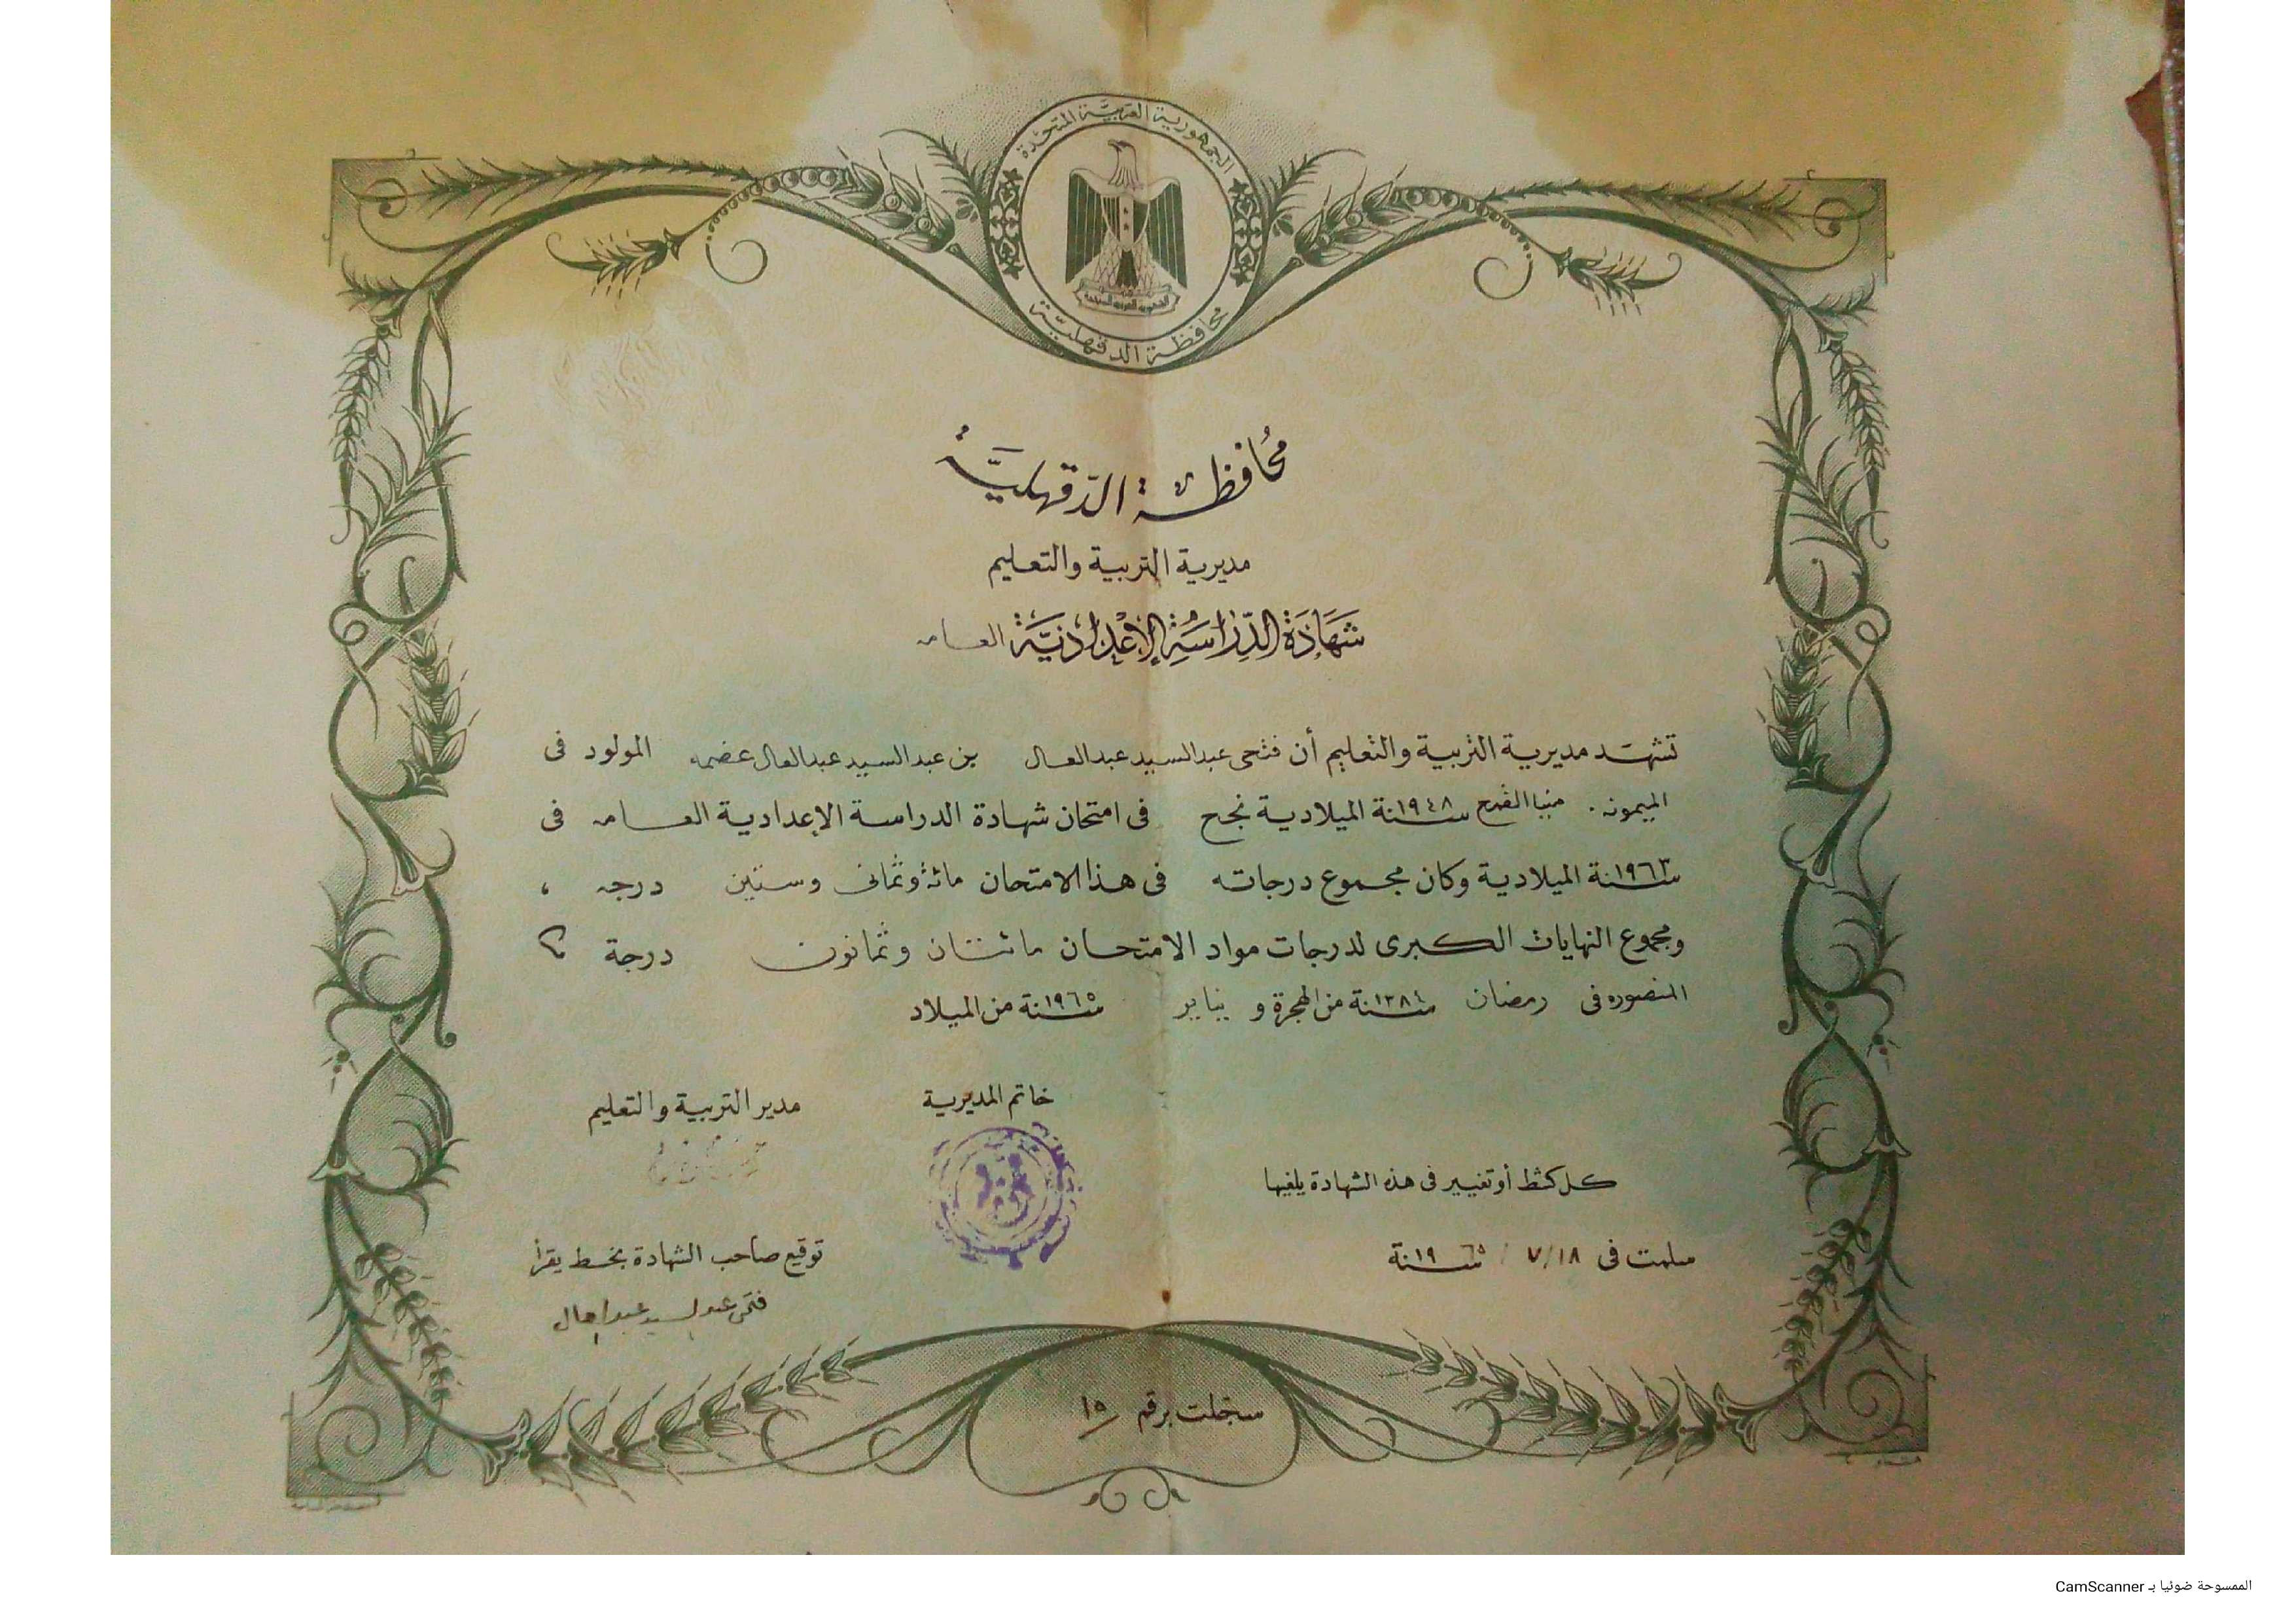 الجمهورية العربية المتحدة
الجمهورية العربية المتحدة
محافظة الدقهلية
محافظة الدقهلية
مديرية التربية والتعليم
شهادة الدراسة الإعدادية العامه
تشهد مديرية التربية والتعليم أن فتحى عبدالسيد عبدالعال بن عبدالسيد عبدالعال المولود فى
الميمونه . منيا القمح سنة ١٩٤٨ الميلادية نجح فى امتحان شهادة الدراسة الإعدادية العامه فى
سنة ١٩٦٣ الميلادية وكان مجموع درجاته فى هذا الامتحان مائة وثمانى وستين درجه ،
ومجموع النهايات الكبرى لدرجات مواد الامتحان مائتان وثمانون درجة
المنصوره فى رمضان سنة ١٣٨٤ من الهجرة و يناير سنة ١٩٦٥ من الميلاد
خاتم المديرية
مدير التربية والتعليم
كل كشط أو تغيير فى هذه الشهادة يلغيها
سلمت فى ١٨/٧/ سنة ١٩٦٥
توقيع صاحب الشهادة بخط يقرأ
فتحى عبد السيد عبد العال
سجلت برقم ١٥
الممسوحة ضوئيا بـ CamScanner